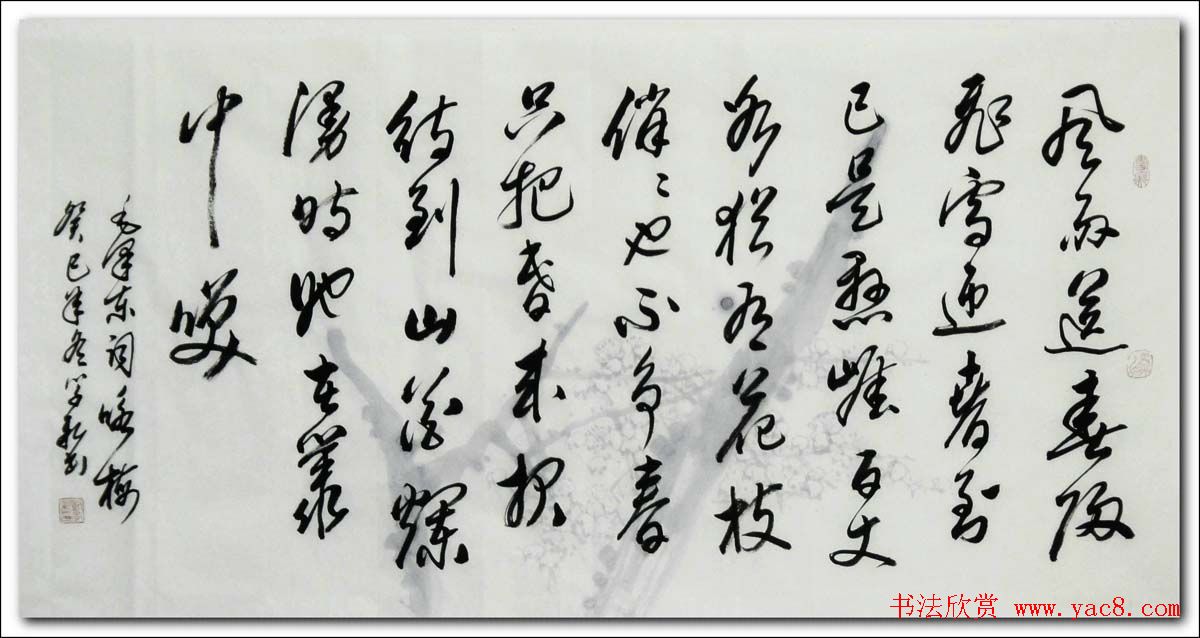 风雨送春归
飞雪迎春到
已是悬崖百丈
冰猶有花枝
俏〻也不争春
只把春来报
待到山花爛
漫时她在叢
中笑
毛泽东词咏梅
癸巳年冬
书法欣赏 www.yac8.com